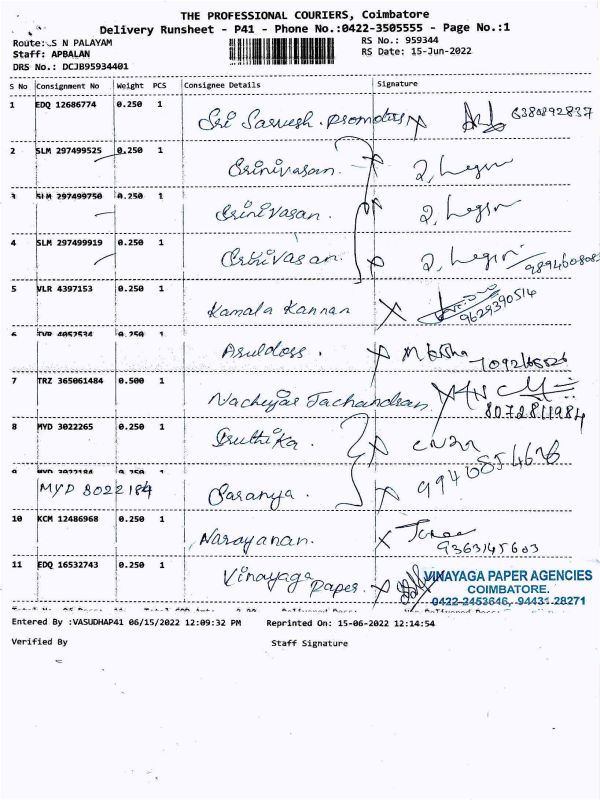 THE PROFESSIONAL COURIERS, Coimbatore
Delivery Runsheet - P41 - Phone No.:0422-3505555 - Page No.:1
Route: S N PALAYAM RS No.: 959344
Staff: APBALAN RS Date: 15-Jun-2022
DRS No.: DCJB95934401
S No Consignment No Weight PCS Consignee Details Signature
1 EDQ 12686774 0.250 1 Sri Sarvesh promoters 6380892837
2 SLM 297499525 0.250 1 Srinivasan
3 SLM 297499750 0.250 1 Srinivasan.
4 SLM 297499919 0.250 1 Srinivasan.
5 VLR 4397153 0.250 1 Kamala Kannan 9629390514
6 TVR 4052534 0.250 1 Aruldoss.
7 TRZ 365061484 0.500 1 Nachiyar 8072811984
8 MYD 3022265 0.250 1 Sruthika.
9 MYD 3022184 0.250 1
MYD 3022184 Saranya. 9940854676
10 KCM 12486968 0.250 1 Narayanan. 9363145603
11 EDQ 16532743 0.250 1 Vinayaga paper. VINAYAGA PAPER AGENCIES
COIMBATORE.
0422-2453646, 94431-28271
Entered By :VASUDHAP41 06/15/2022 12:09:32 PM Reprinted On: 15-06-2022 12:14:54
Verified By Staff Signature